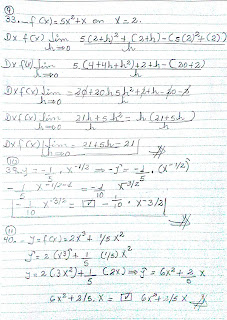 9
33. f(x)=5x²+x on x=2.
Dx f(x) lim h→0 5(2+h)²+(2+h)-(5(2)²+(2)) / h
Dx f(x) lim h→0 5.(4+4h+h²)+2+h-(20+2) / h
Dx f(x) lim h→0 = 20+20h 5h²+2+h-20-2 / h
Dx f(x) lim h→0 = 21h+5h² / h = h(21+5h) / h
Dx f(x) lim h→0 = 21+5h = 21
10
39. y = -1/5 . x^-1/2 → y' = -1/5 . (x^-1/2)'
-1/5 x^-1/2-2 = -1/10 x^-3/2
-1/10 x^-3/2 = ☑ -1/10 . x^-3/2
11
40. y = f(x) = 2x³ + 1/5 x²
y' = 2(x³)' + 1/5 (x²)'
y = 2(3x²) + 1/5 (2x) → y' = 6x² + 2/5 x
6x² + 2/5, x = ☑ 6x² + 2/5 x